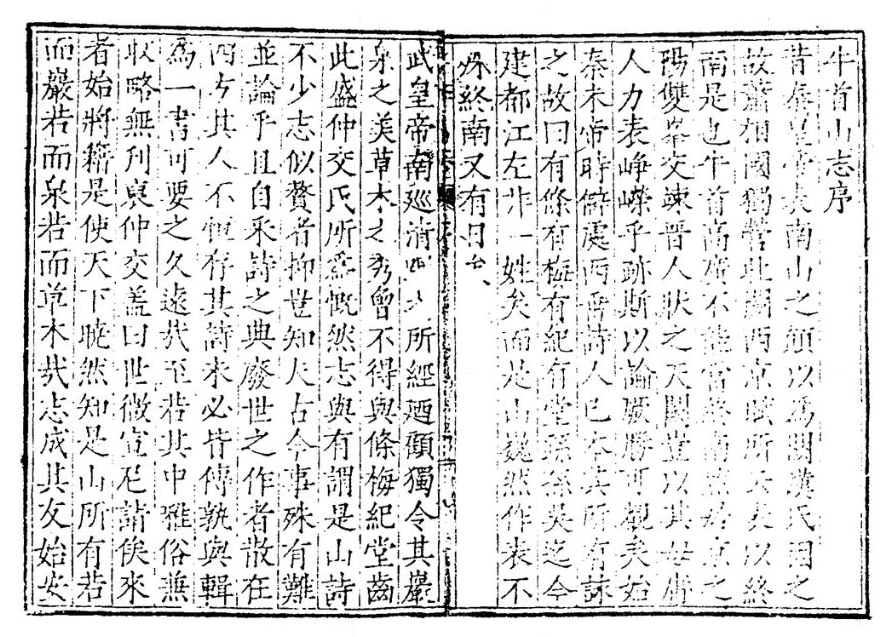 牛首山志序
昔秦皇帝表南山之顛以爲闕漢氏因之
故蕭相國獨營北闕西京賦所云表以終
南是也牛首高廣不能當終南然於京之
陽雙峯交竦晉人狀之天闕豈以其毋虞
人力表崢嶸乎跡斯以論厥勝可觀矣始
秦未帝時僻處西雍詩人已本其所有詠
之故曰有條有梅有紀有堂孫吳迄今
建都江左非一姓矣而是山巍然作表不
殊終南又有日
武皇帝南廵清所經廼顧獨令其巖
泉之美草木之秀曾不得與條梅紀堂齒
此盛仲交氏所爲慨然志與有謂是山詩
不少志似贅者抑豈知夫古今事殊有難
並論乎且自采詩之典廢世之作者散在
四方其人不恒存其詩未必皆傳孰與輯
爲一書可要之久遠哉至若其中雅俗無
取略無刋仲交盖曰世微宣尼請俟來
者始將籍是使天下曉然知是山所有若
而巖若而泉若而草木哉志成其友始安